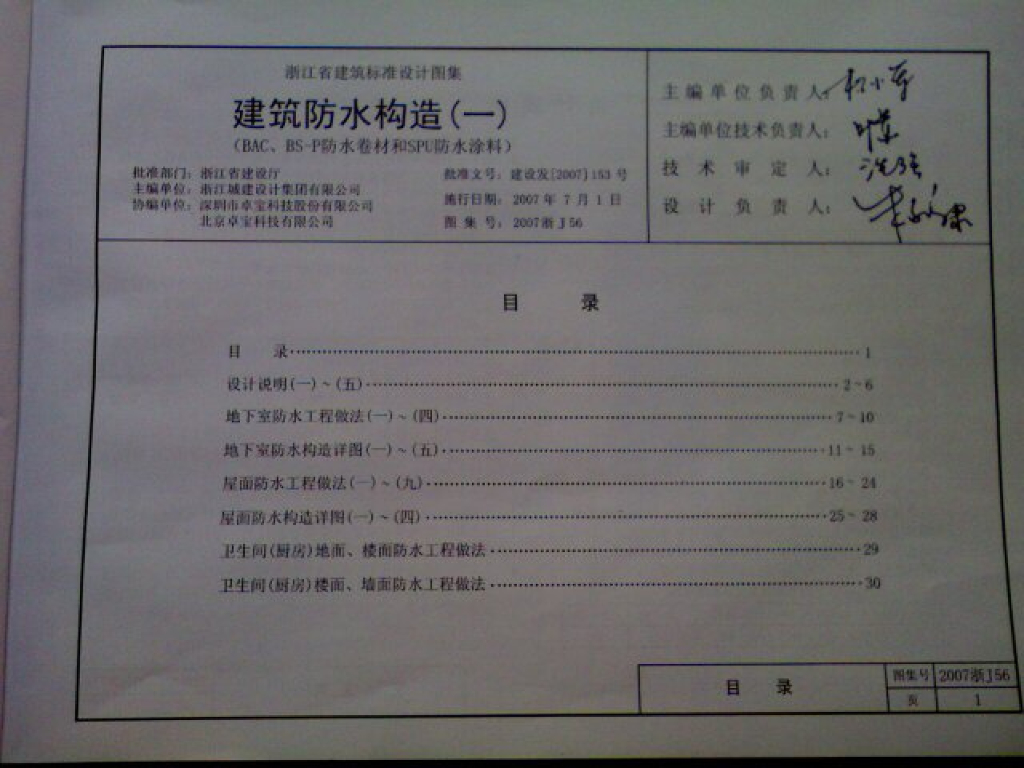 浙江省建筑标准设计图集
建筑防水构造(一)
(BAC、BS-P防水卷材和SPU防水涂料)
批准部门：浙江省建设厅
主编单位：浙江城建设计集团有限公司
协编单位：深圳市卓宝科技股份有限公司
北京卓宝科技有限公司
批准文号：建设发[2007]153 号
施行日期：2007 年 7 月 1 日
图 集 号：2007浙J56
主编单位负责人：
主编单位技术负责人：
技 术 审 定 人：
设 计 负 责 人：
目 录
目 录 1
设计说明(一)~(五) 2~6
地下室防水工程做法(一)~(四) 7~10
地下室防水构造详图(一)~(五) 11~15
屋面防水工程做法(一)~(九) 16~24
屋面防水构造详图(一)~(四) 25~28
卫生间(厨房)地面、楼面防水工程做法 29
卫生间(厨房)楼面、墙面防水工程做法 30
目 录
图集号 2007浙J56
页 1